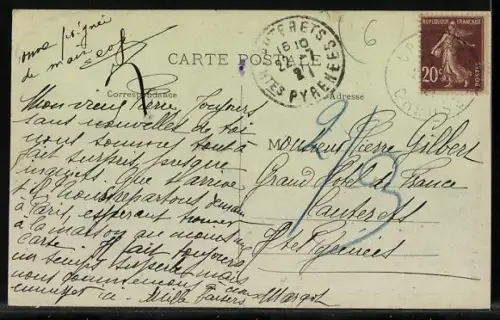 CARTE POSTALE
Correspondance
Adresse
CAUTERETS
15 10
22
Htes PYRENEES
REPUBLIQUE FRANÇAISE
20c
POSTES
6
2/3
Mon vieux Pierre, Toujours
sans nouvelles de toi
nous sommes tout à
fait surpris, presque
inquiets. Que t'arrive
t-il. Nous repartons demain
à Paris, espérant trouver
à la maison au moins une
carte. Il fait toujours
un temps superbe mais
nous commençons à nous
ici. Mille baisers
Margot
Monsieur Pierre Gilbert
Grand Hôtel de France
Cauterets
Htes Pyrénées